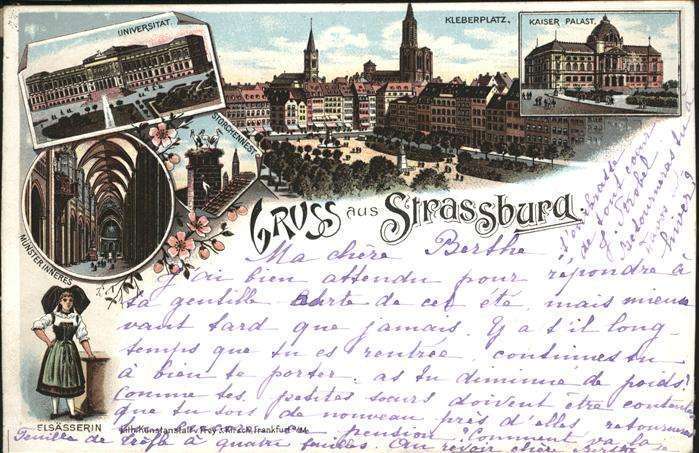 UNIVERSITÄT.
KLEBERPLATZ.
KAISER PALAST.
STORCHENNEST
MÜNSTER INNERES
ELSÄSSERIN
GRUSS aus Strassburg
Lith. Kunstanstalt v. Frey & Frankfurt a/M.
Ma chère Berthe
J'ai bien attendu pour répondre à
ta gentille carte de cet été, mais mieux
vaut tard que jamais. Y a t'il long-
temps que tu es rentrée, continues tu
à bien te porter. as tu diminué de poids?
Comme tes petites sœurs doivent être contentes
que tu sois de nouveau près d'elles, retournes
pension? Comment va la
feuille de trèfle à quatre feuilles. Au revoir chère Berthe
t'embrasse
de tout cœur
J. Strohl
Retourneras tu
hiver?